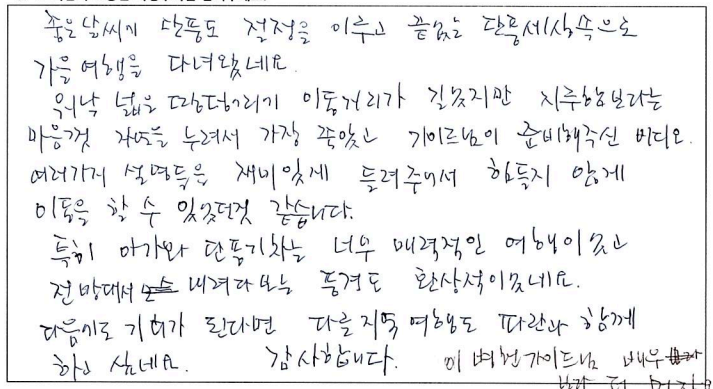 좋은 날씨에 단풍도 절정을 이루고 끝없는 단풍세상속으로
가을 여행을 다녀왔네요.
워낙 넓은 땅덩어리 이동거리가 길었지만
마음껏 자연을 누려서 가장 좋았고 가이드님이 준비해주신 비디오.
여러가지 설명등을 재미있게 들려주셔서 힘들지 않게
이동을 할 수 있었던것 같습니다.
특히 아가와 단풍기차는 너무 매력적인 여행이었고
전망대서 내려다 보는 풍경도 환상적이었네요.
다음에도 기회가 된다면 다른지역 여행도 파란과 함께
하고 싶네요. 감사합니다. 이병헌가이드님 배우
보다 더 멋지